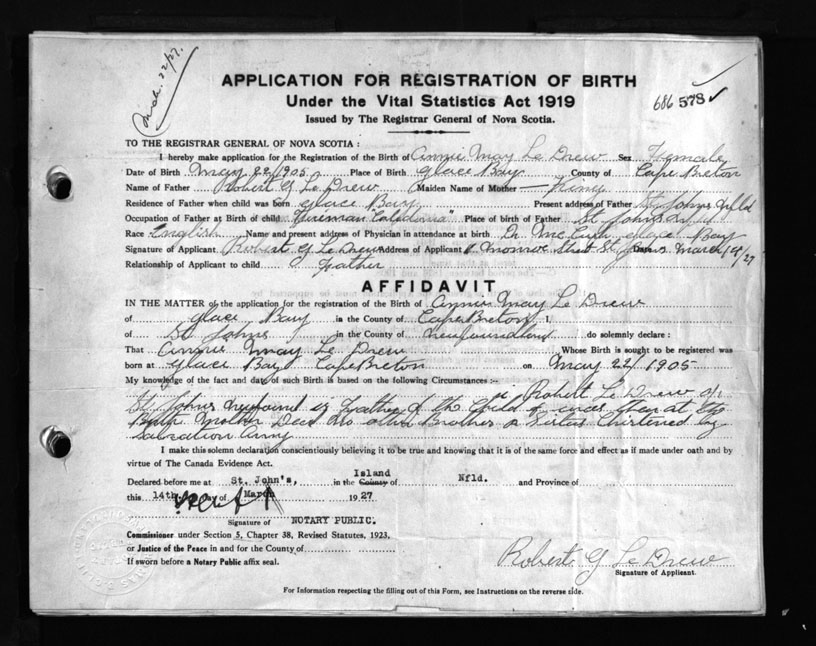 March 22/27.
APPLICATION FOR REGISTRATION OF BIRTH
Under the Vital Statistics Act 1919
Issued by The Registrar General of Nova Scotia.
686 578
TO THE REGISTRAR GENERAL OF NOVA SCOTIA :
I hereby make application for the Registration of the Birth of Annie May Le Drew Sex Female
Date of Birth May 22/1905 Place of Birth Glace Bay County of Cape Breton
Name of Father Robert G Le Drew Maiden Name of Mother
Residence of Father when child was born Glace Bay Present address of Father St Johns Nfld
Occupation of Father at Birth of child Fireman "Caledonia" Place of birth of Father St Johns
Race English Name and present address of Physician in attendance at birth Dr Glace Bay
Signature of Applicant Robert G Le Drew Address of Applicant Monroe Street St Johns March 14/27
Relationship of Applicant to child Father
AFFIDAVIT
IN THE MATTER of the application for the registration of the Birth of Annie May Le Drew
of Glace Bay in the County of Cape Breton I,
of St Johns in the County of Newfoundland do solemnly declare :
That Annie May Le Drew Whose Birth is sought to be registered was
born at Glace Bay Cape Breton on May 22/1905
My knowledge of the fact and date of such Birth is based on the following Circumstances :-
Robert Le Drew of
St Johns is Father of the Child at the
Birth Mother Dead No other Brother or Sister Christened by
Salvation Army
I make this solemn declaration conscientiously believing it to be true and knowing that it is of the same force and effect as if made under oath and by
virtue of The Canada Evidence Act.
Island
Declared before me at St. John's, in the County of Nfld. and Province of
this 14th day of March 1927
Signature of NOTARY PUBLIC.
Commissioner under Section 5, Chapter 38, Revised Statutes, 1923,
or Justice of the Peace in and for the County of
If sworn before a Notary Public affix seal.
Robert G Le Drew
Signature of Applicant.
For Information respecting the filling out of this Form, see Instructions on the reverse side.